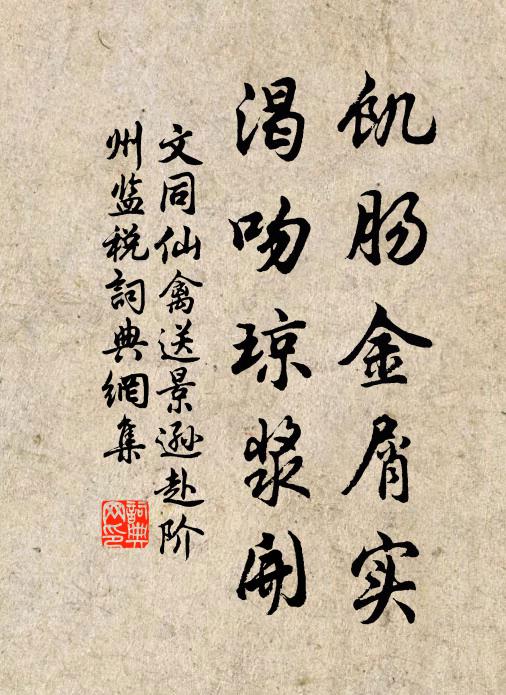 飢肠金屑实
渴吻琼浆開
文同仙禽送景遜赴阶
州监税詞典網集
詞典
网印